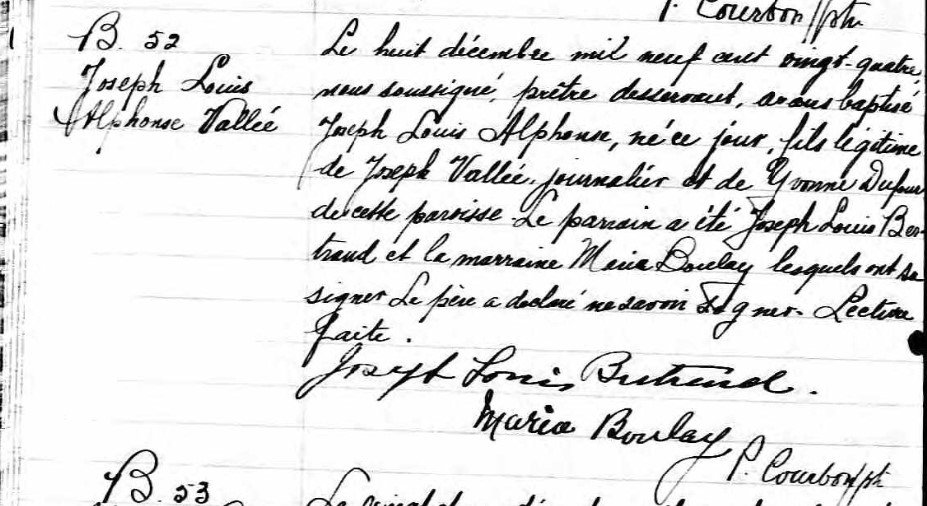 P. Courbon ptr
B. 52
Joseph Louis
Alphonse Vallée
Le huit décembre mil neuf cent vingt-quatre,
nous soussigné, prêtre desservant, avons baptisé
Joseph Louis Alphonse, né ce jour, fils légitime
de Joseph Vallée, journalier et de Yvonne Dufour
de cette paroisse. Le parrain a été Joseph Louis Ber-
trand et la marraine Maria Boulay lesquels ont su
signer. Le père a declaré ne savoir signer. Lecture
faite.
Joseph Louis Bertrand.
Maria Boulay
P. Courbon ptr
B. 53